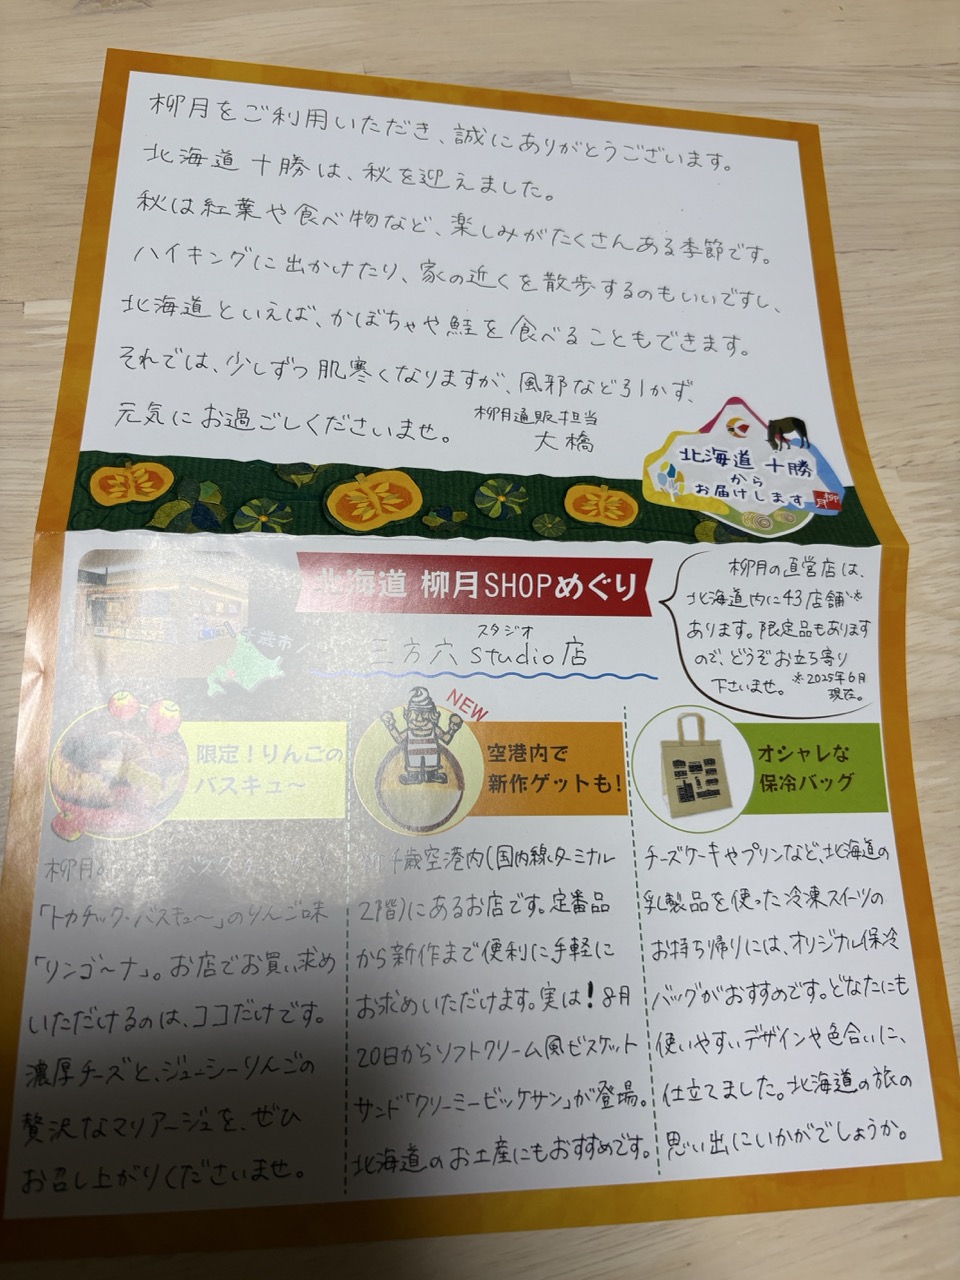 柳月をご利用いただき、誠にありがとうございます。
北海道 十勝は、秋を迎えました。
秋は紅葉や食べ物など、楽しみがたくさんある季節です。
ハイキングに出かけたり、家の近くを散歩するのもいいですし、
北海道といえば、かぼちゃや鮭を食べることもできます。
それでは、少しずつ肌寒くなりますが、風邪など引かず、
元気にお過ごしくださいませ。
柳月通販担当
大橋
北海道 十勝
から
お届けします
柳月
北海道 柳月SHOPめぐり
スタジオ
三方六 studio店
柳月の直営店は、
北海道内に43店舗※
あります。限定品もあります
ので、どうぞお立ち寄り
下さいませ。
※2025年6月
現在。
限定！りんごの
バスキュ〜
柳月
「トカチック・バスキュ〜」のりんご味
「リンゴ〜ナ」。お店でお買い求め
いただけるのは、ココだけです。
濃厚チーズと、ジューシーりんごの
贅沢なマリアージュを、ぜひ
お召し上がりくださいませ。
NEW
空港内で
新作ゲットも！
千歳空港内(国内線ターミナル
2階)にあるお店です。定番品
から新作まで便利に手軽に
お求めいただけます。実は！8月
20日からソフトクリーム風ビスケット
サンド「クリーミービッケサン」が登場。
北海道のお土産にもおすすめです。
オシャレな
保冷バッグ
チーズケーキやプリンなど、北海道の
乳製品を使った冷凍スイーツの
お持ち帰りには、オリジナル保冷
バッグがおすすめです。どなたにも
使いやすいデザインや色合いに、
仕立てました。北海道の旅の
思い出にいかがでしょうか。